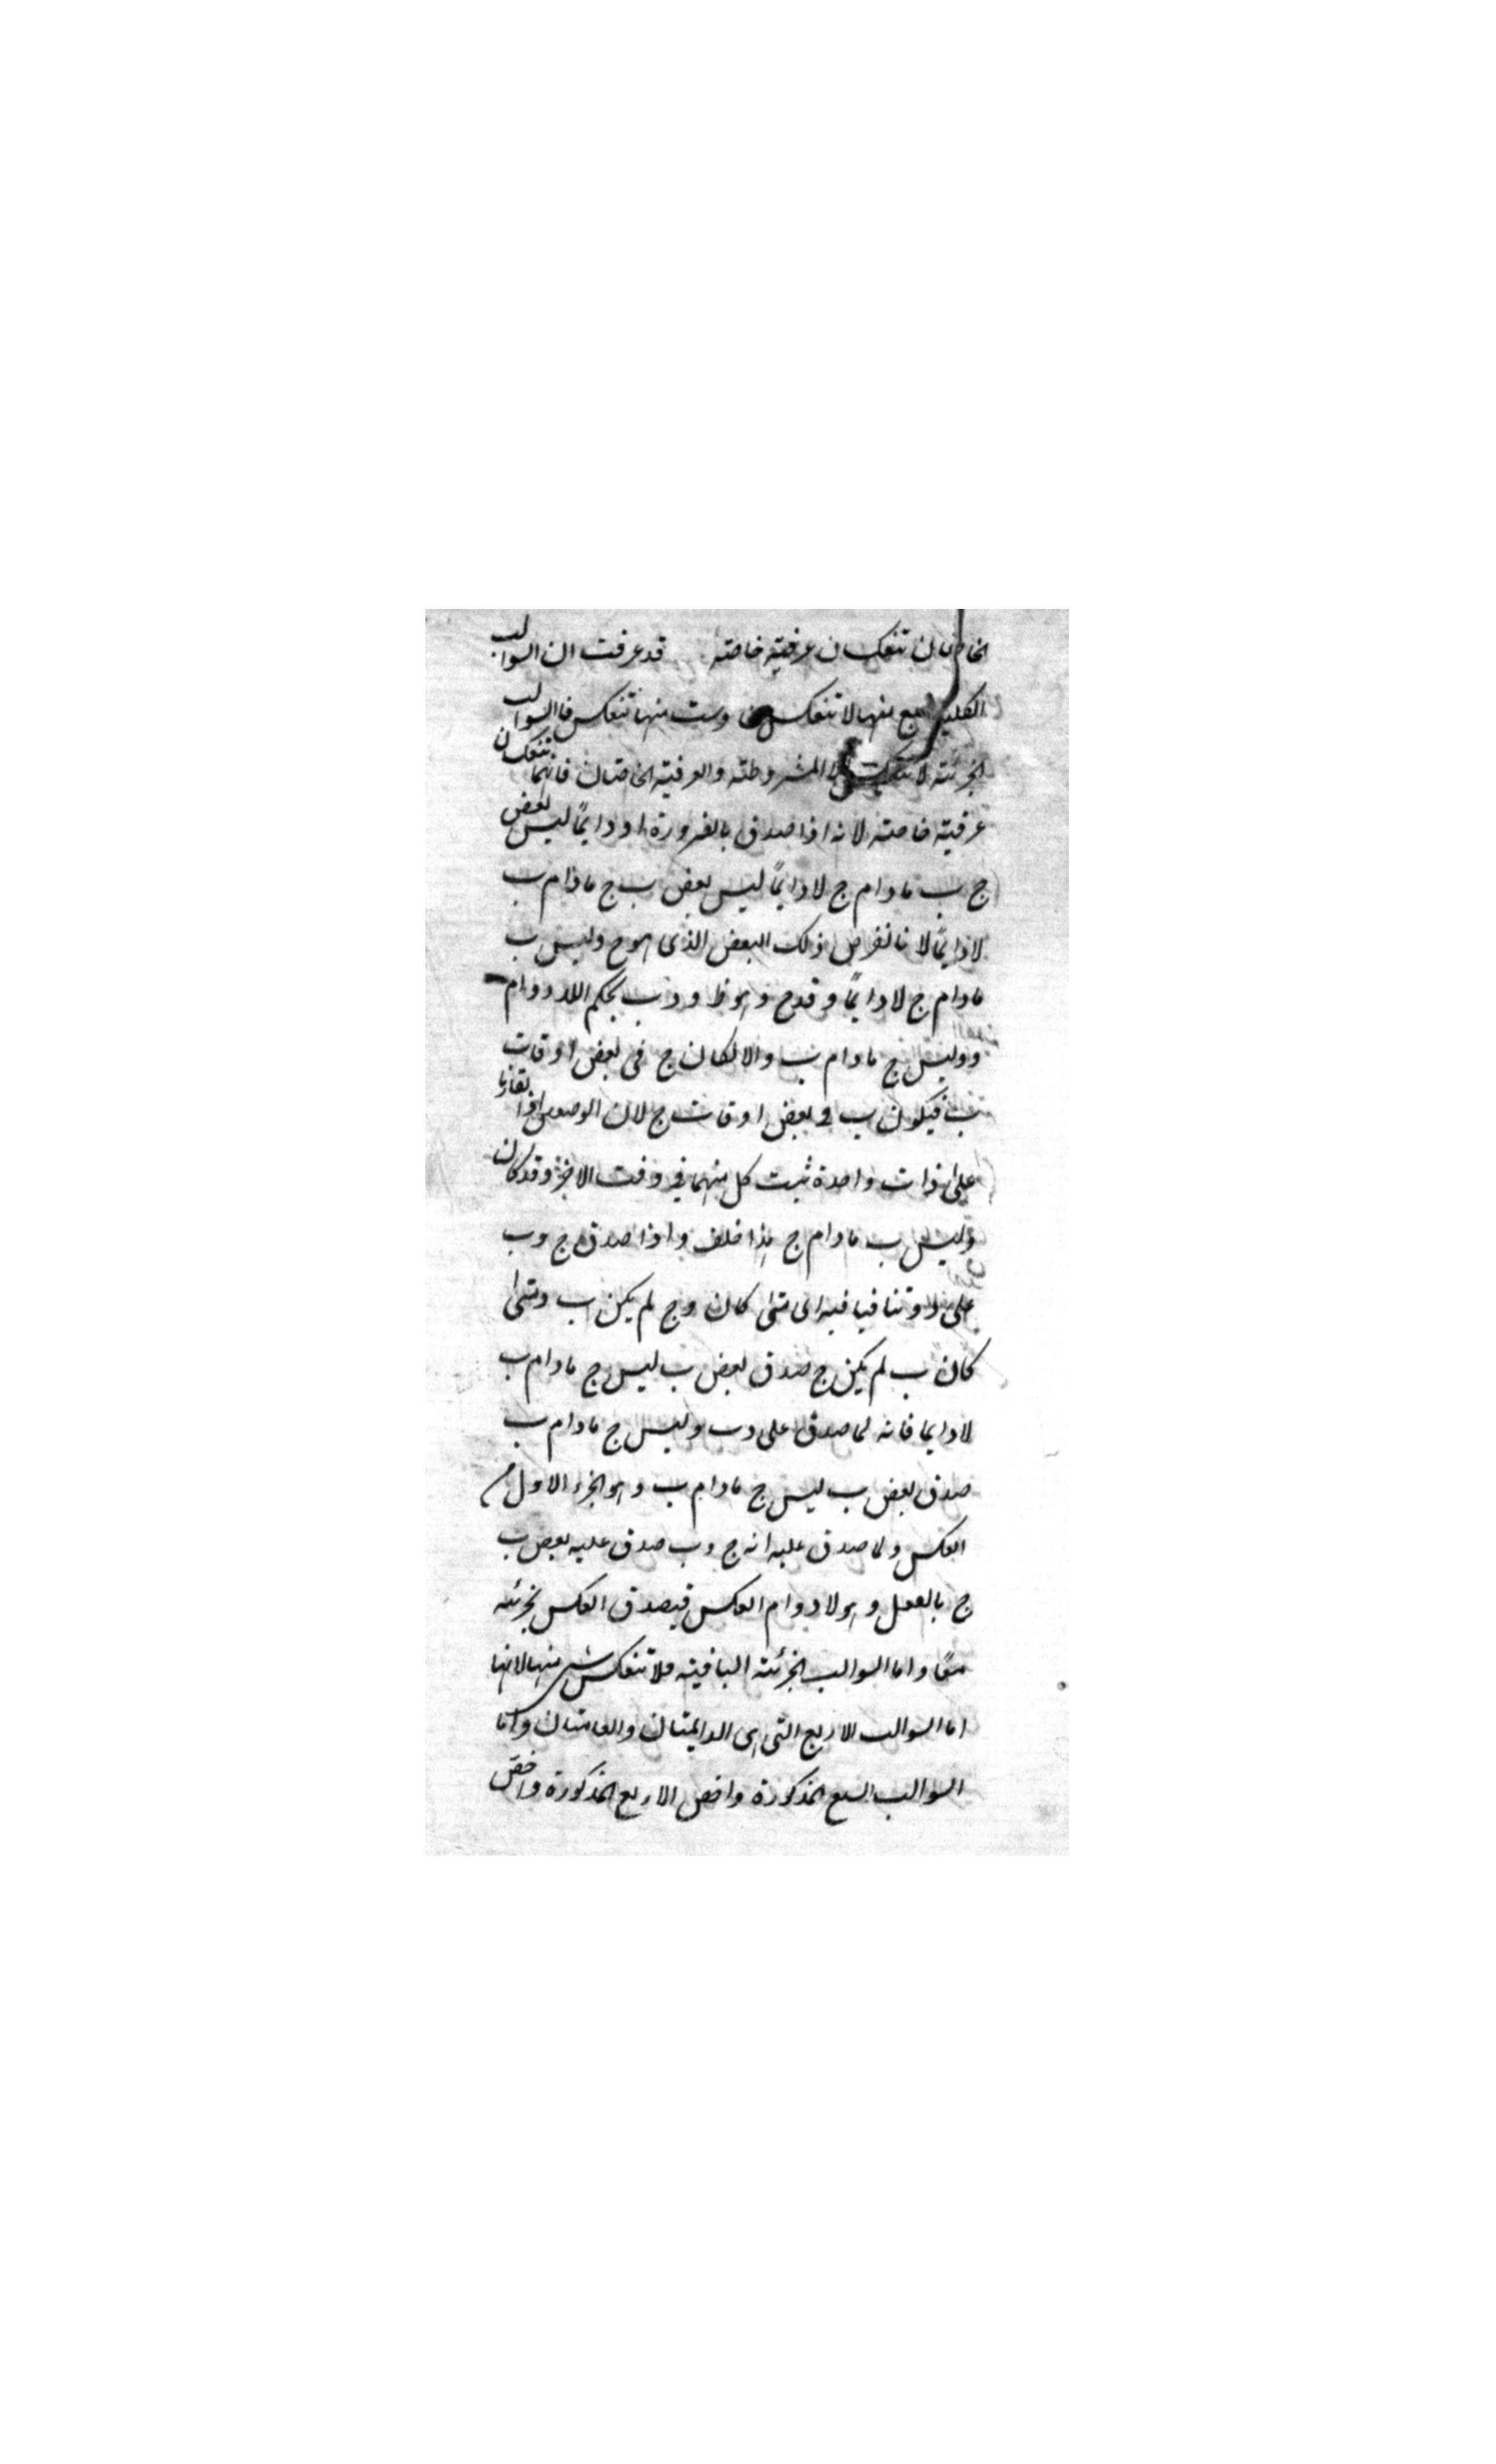 الخاصتان تنعكسان عرفية خاصة قد عرفت ان السوالب
الكلية سبع منها لا تنعكس وست منها تنعكس فالسوالب
الجزئية لا تنعكس الا المشروطة والعرفية الخاصتان فانهما تنعكسان
عرفية خاصة لانه اذا صدق بالضرورة او دايمًا ليس بعض
ج ب مادام ج لا دايمًا ليس بعض ب ج مادام ب
لا دايمًا لانا نفرض ذلك البعض الذى هو ج وليس ب
مادام ج لا دايمًا د فدج وهو ظ ودب بحكم اللادوام
ودليس ج مادام ب والا لكان ج فى بعض اوقات
ب فيكون ب فى بعض اوقات ج لان الوصفين اذا تقارنا
على ذات واحدة ثبت كل منهما فى وقت الاخر وقد كان
دليس ب مادام ج هذا خلف واذا صدق ج وب
على د وتنافيا فيه اى متى كان د ج لم يكن ب ومتى
كان ب لم يكن ج صدق بعض ب ليس ج مادام ب
لا دايما فانه لما صدق على د ب وليس ج مادام ب
صدق بعض ب ليس ج مادام ب وهو الجزء الاول من
العكس ولما صدق عليه انه ج وب صدق عليه بعض ب
ج بالفعل وهو لا دوام العكس فيصدق العكس بجزئيه
معًا واما السوالب الجزئية الباقية فلا تنعكس شى منها لانها
اما السوالب الاربع التى هى الدايمتان والعامتان واما
السوالب السبع المذكورة واخص الاربع المذكورة واخص